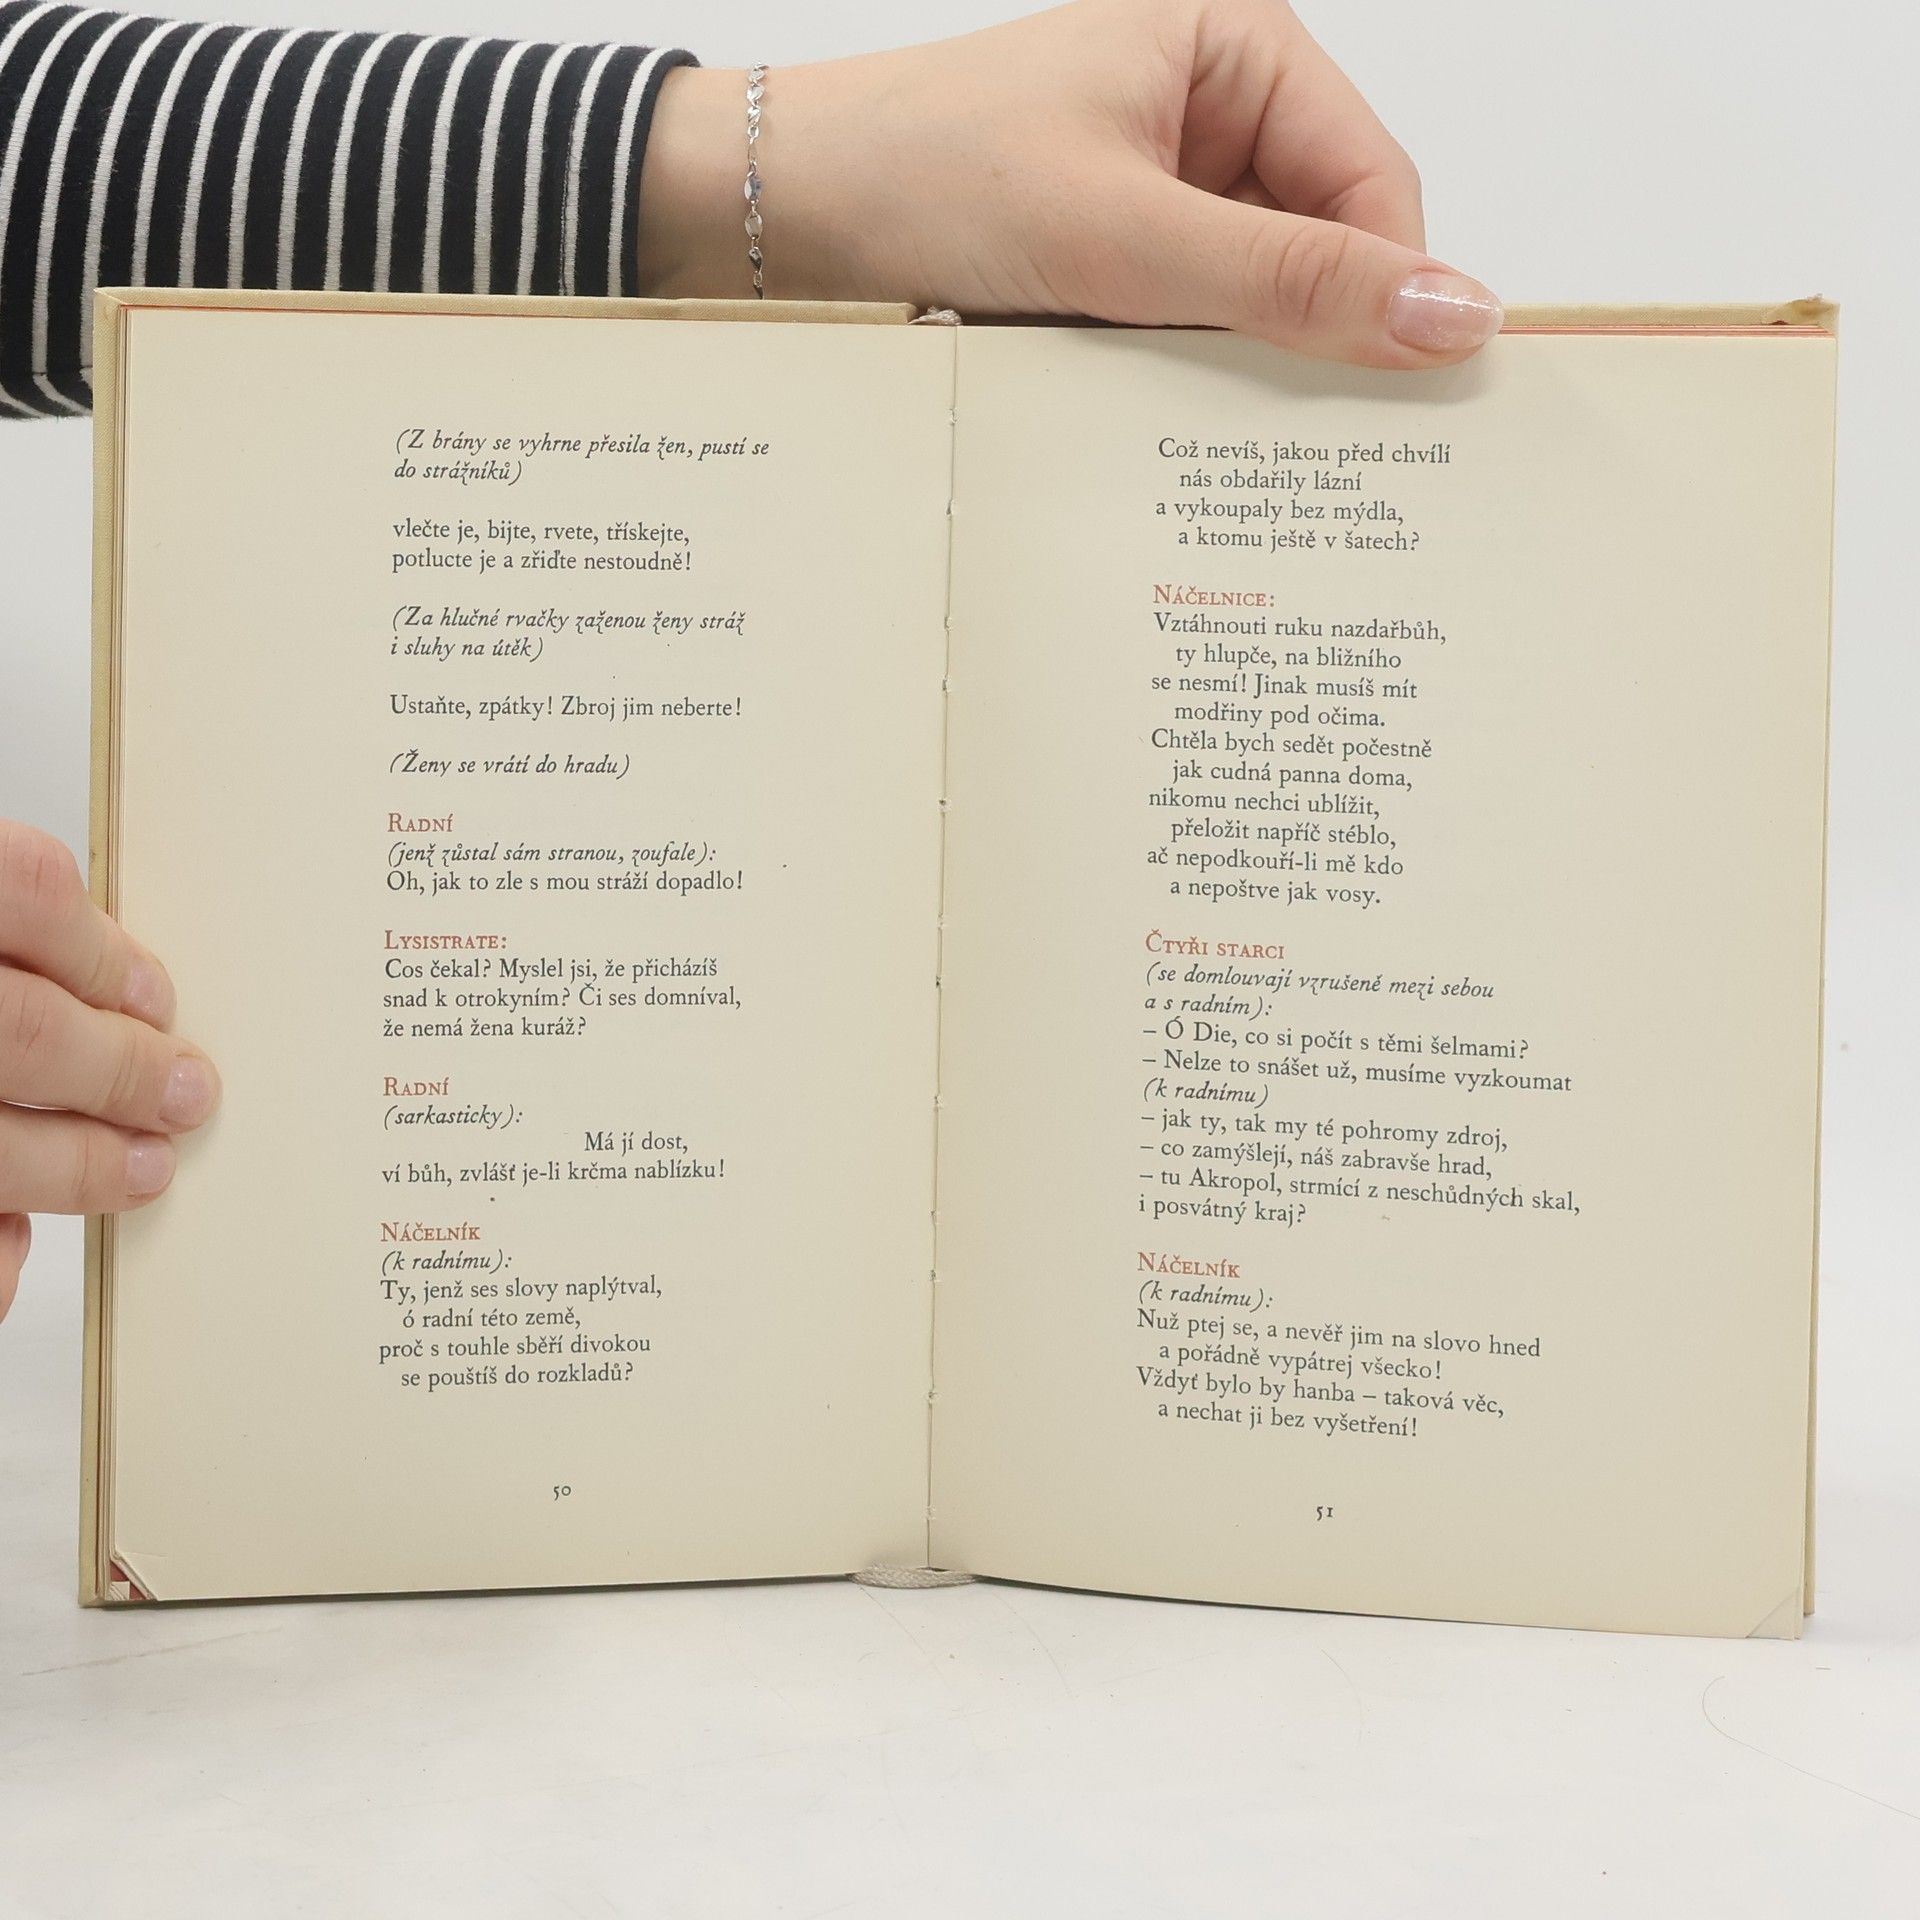 (Z brány se vyhrne přesila žen, pustí se
do strážníků)
vlečte je, bijte, rvete, třískejte,
potlucte je a zřiďte nestoudně!
(Za hlučné rvačky zaženou ženy stráž
i sluhy na útěk)
Ustaňte, zpátky! Zbroj jim neberte!
(Ženy se vrátí do hradu)
Radní
(jenž zůstal sám stranou, zoufale):
Oh, jak to zle s mou stráží dopadlo!
Lysistrate:
Cos čekal? Myslel jsi, že přicházíš
snad k otrokyním? Či ses domníval,
že nemá žena kuráž?
Radní
(sarkasticky):
Má jí dost,
ví bůh, zvlášť je-li krčma nablízku!
Náčelník
(k radnímu):
Ty, jenž ses slovy naplýtval,
ó radní této země,
proč s touhle sběří divokou
se pouštíš do rozkladů?
50
Což nevíš, jakou před chvílí
nás obdařily lázní
a vykoupaly bez mýdla,
a ktomu ještě v šatech?
Náčelnice:
Vztáhnouti ruku nazdařbůh,
ty hlupče, na bližního
se nesmí! Jinak musíš mít
modřiny pod očima.
Chtěla bych sedět počestně
jak cudná panna doma,
nikomu nechci ublížit,
přeložit napříč stéblo,
ač nepodkouří-li mě kdo
a nepoštve jak vosy.
Čtyři starci
(se domlouvají vzrušeně mezi sebou
a s radním):
– Ó Die, co si počít s těmi šelmami?
– Nelze to snášet už, musíme vyzkoumat
(k radnímu)
– jak ty, tak my té pohromy zdroj,
– co zamýšlejí, náš zabravše hrad,
– tu Akropol, strmící z neschůdných skal,
i posvátný kraj?
Náčelník
(k radnímu):
Nuž ptej se, a nevěř jim na slovo hned
a pořádně vypátrej všecko!
Vždyť bylo by hanba – taková věc,
a nechat ji bez vyšetření!
51